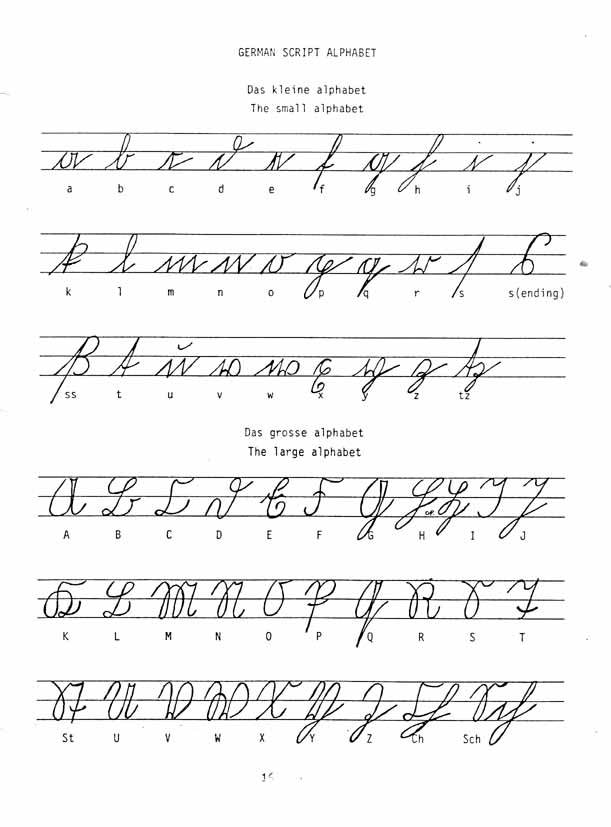 GERMAN SCRIPT ALPHABET
Das kleine alphabet
The small alphabet
a b c d e f g h i j
k l m n o p q r s s(ending)
ss t u v w x y z tz
Das grosse alphabet
The large alphabet
or
A B C D E F G H I J
K L M N O P Q R S T
St U V W X Y Z Ch Sch